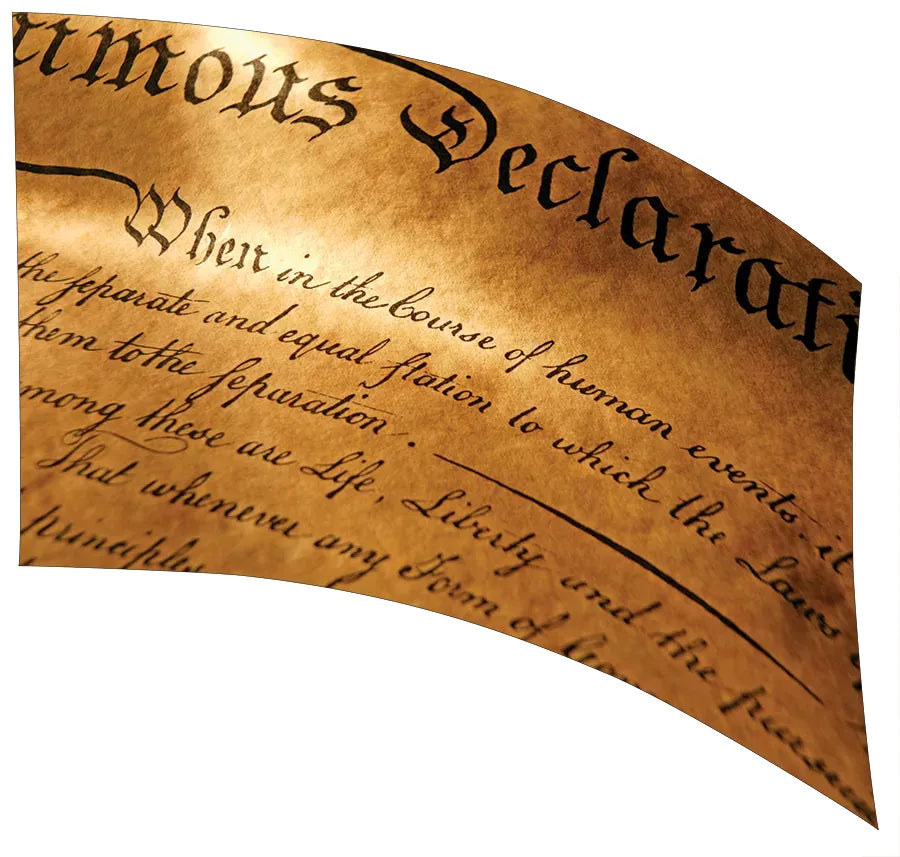 imous Declarati
When in the Course of human events, it
the separate and equal station to which the Laws
them to the separation.
mong these are Life, Liberty and the pursu
That whenever any Form of Gov
principles